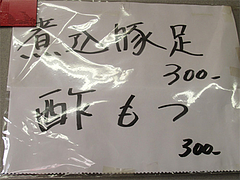 煮込豚足
300-
酢もつ
300-